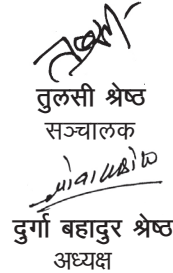 तुलसी श्रेष्ठ
सञ्चालक
दुर्गा बहादुर श्रेष्ठ
अध्यक्ष